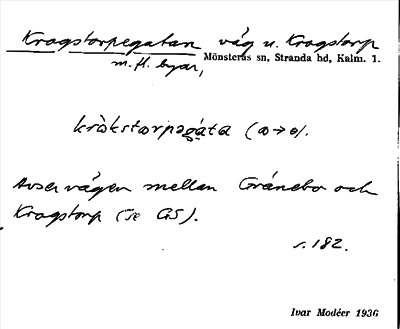 Kragstorpegatan väg u. Kragstorp
m. fl. byar, Mönsterås sn, Stranda hd, Kalm. l.
kràkstarpagáta (a→o).
Avser vägen mellan Gránebo och
Kragstorp (se GS).
s. 182.
Ivar Modéer 1936